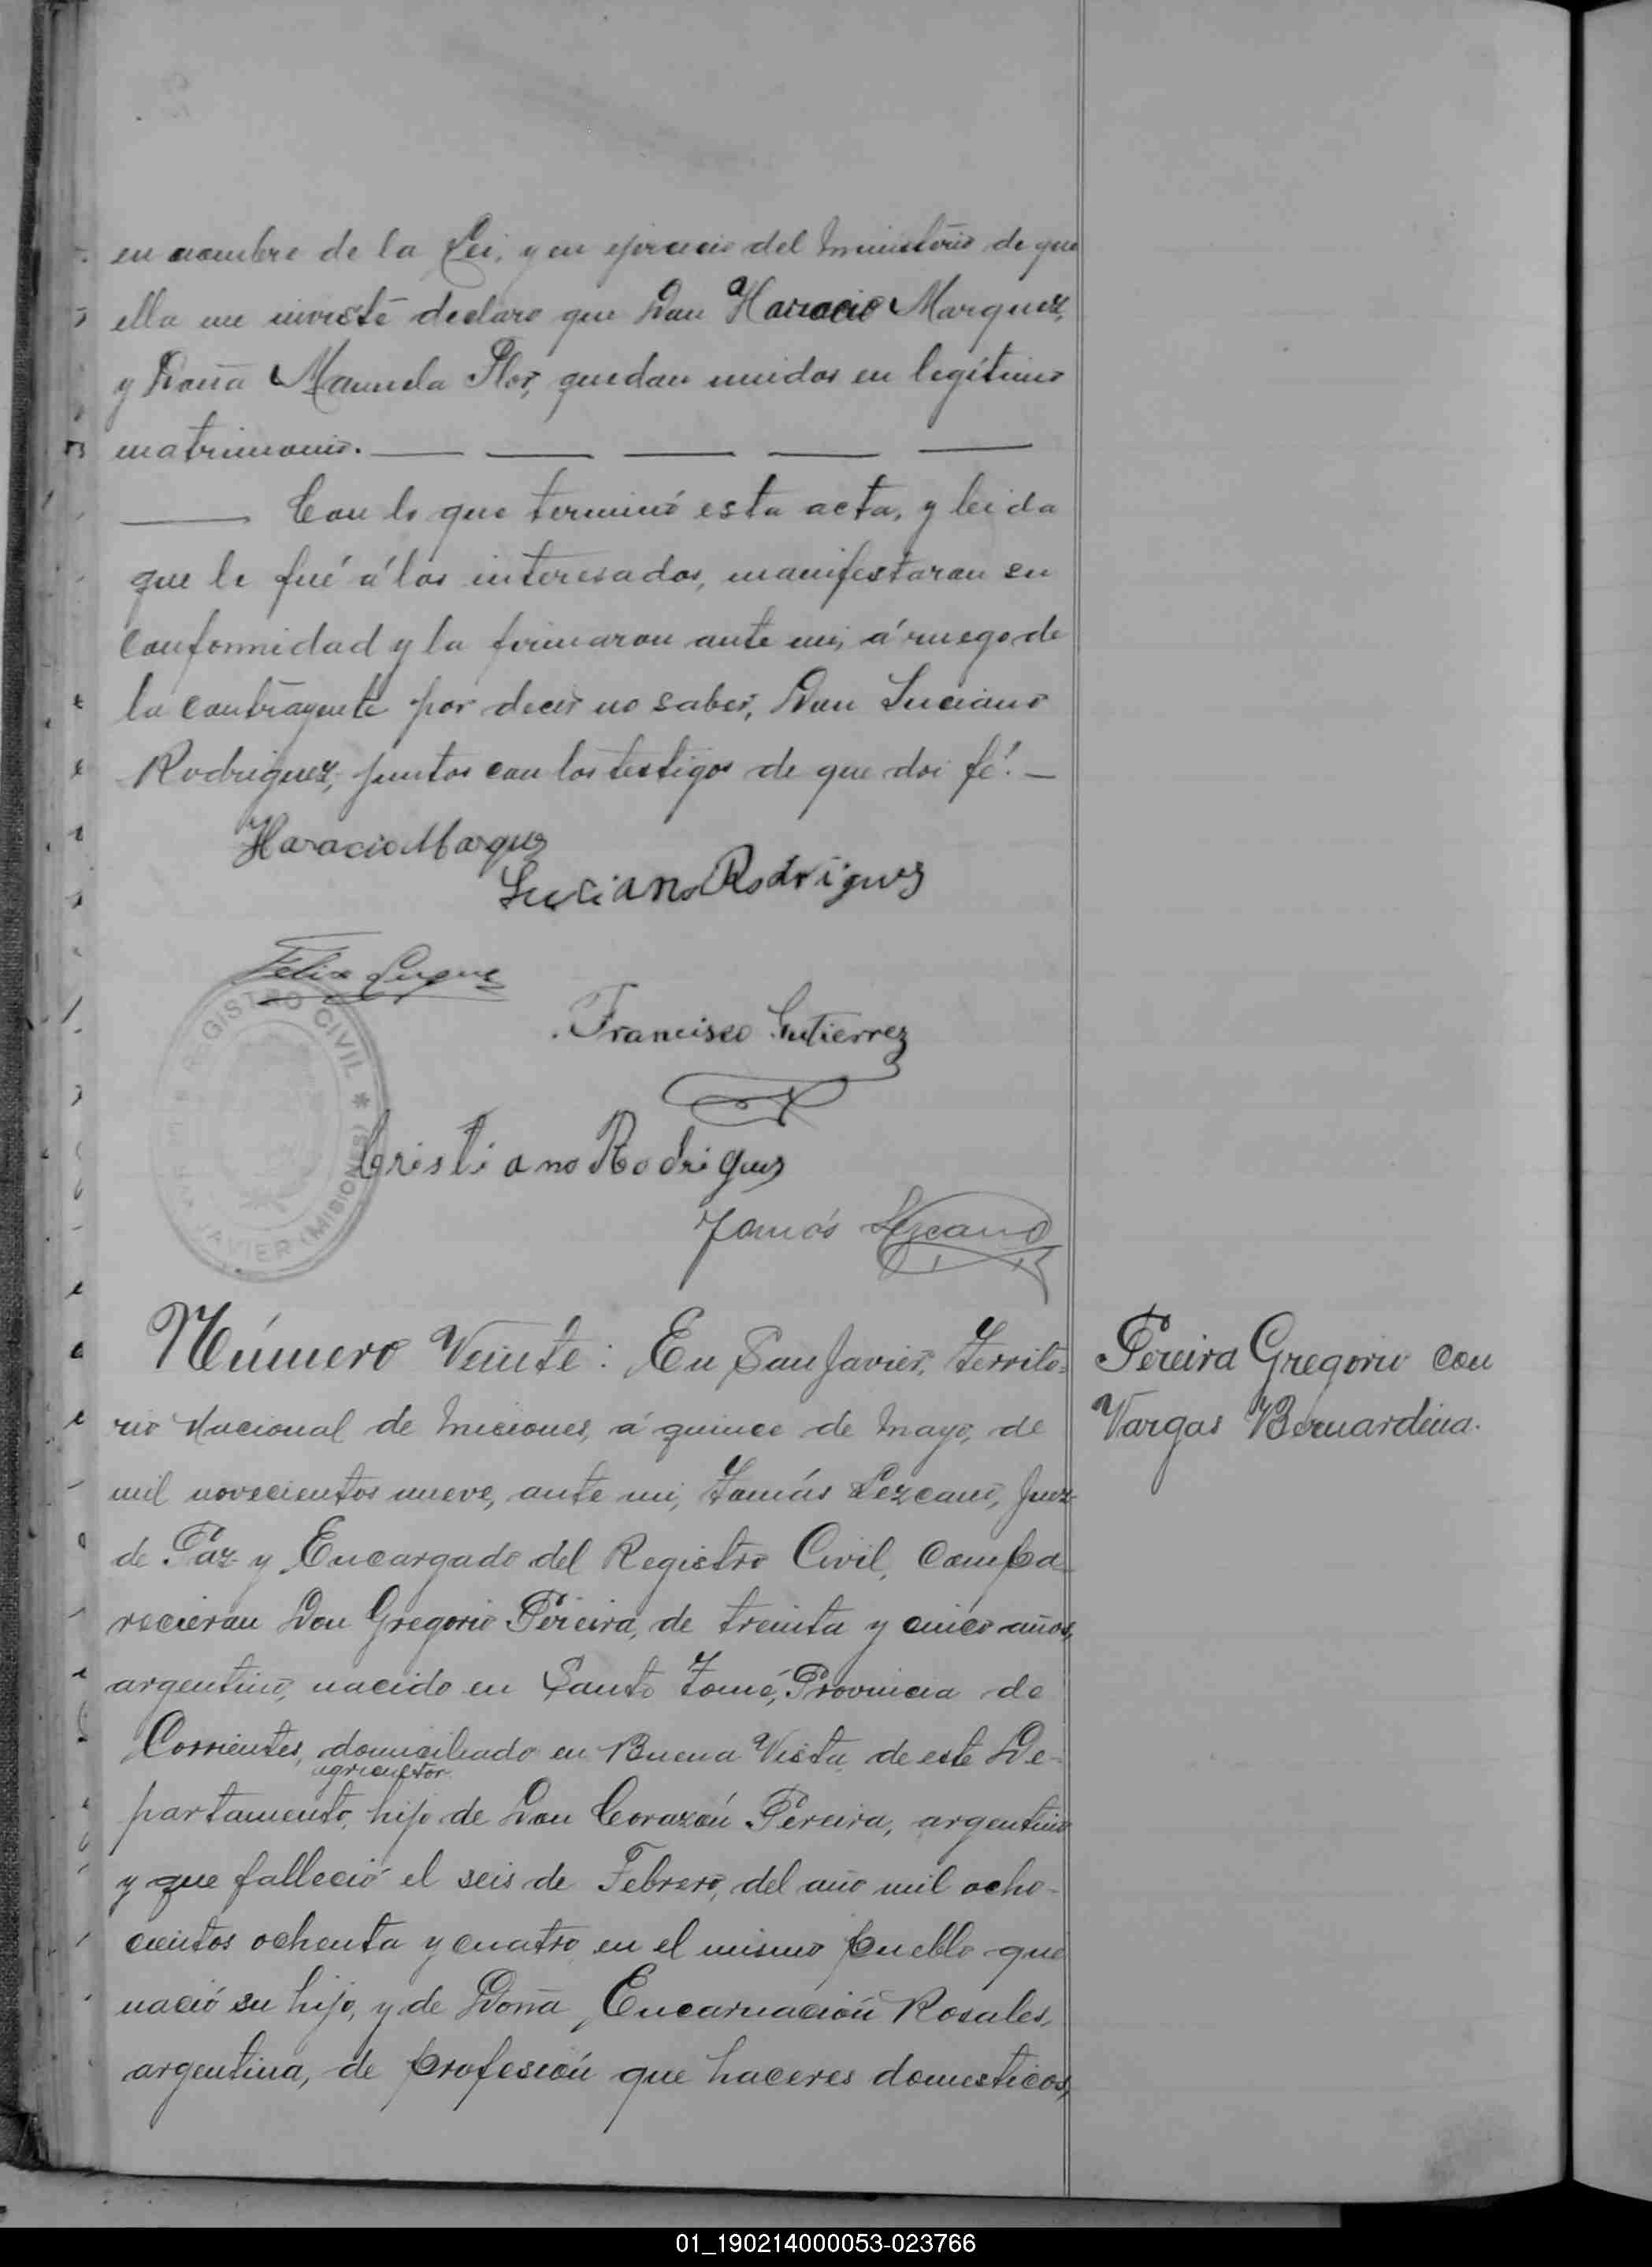 en nombre de la Lei, y en ejercicio del Ministerio de que
ella me inviste declaro que Don Horacio Marquez,
y Doña Manuela Flor, quedan unidos en legítimo
matrimonio. — — — — —
— Con lo que terminó esta acta, y leida
que le fué á los interesados, manifestaron su
conformidad y la firmaron ante mi, á ruego de
la contrayente por decir no saber, Don Luciano
Rodriguez, juntos con los testigos de que doi fé. —
Horacio Marquez
Luciano Rodriguez
Felix Luque
Francisco Gutierrez
REGISTRO CIVIL * SAN JAVIER (MISIONES)
Cristiano Rodriguez
Tomás Lezcano
Número Veinte: En San Javier, Territo-
rio Nacional de Misiones, á quince de Mayo, de
mil novecientos nueve, ante mi, Tomás Lezcano, Juez
de Paz y Encargado del Registro Civil, compa-
recieron Don Gregorio Pereira, de treinta y cinco años,
argentino, nacido en Santo Tomé, Provincia de
Corrientes, domiciliado en Buena Vista, de este De-
agricultor
partamento, hijo de Don Corazón Pereira, argentino
y que falleció el seis de Febrero, del año mil ocho-
cientos ochenta y cuatro, en el mismo pueblo que
nació su hijo, y de Doña Encarnación Rosales,
argentina, de profesión que haceres domesticos,
Pereira Gregorio con
Vargas Bernardina.
01_190214000053-023766